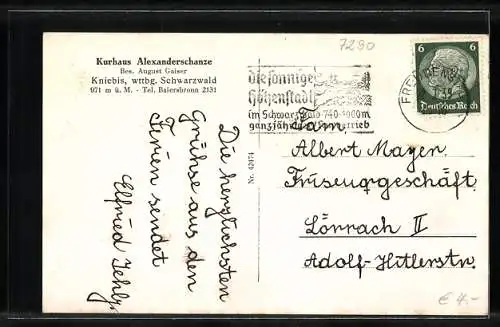 7290
Kurhaus Alexanderschanze
Bes. August Gaiser
Kniebis, wttbg. Schwarzwald
971 m ü. M. - Tel. Baiersbronn 2131
die sonnige
Höhenstadt
im Schwarzwald 740-1000m
ganzjährig
6 6
Deutsches Reich
Die herzlichsten
Grüße aus den
Ferien sendet
Elfried
Nr. 42074
Fam.
Albert Mayer
Friseurgeschäft
Lörrach II
Adolf-Hitlerstr.
€ 4.-